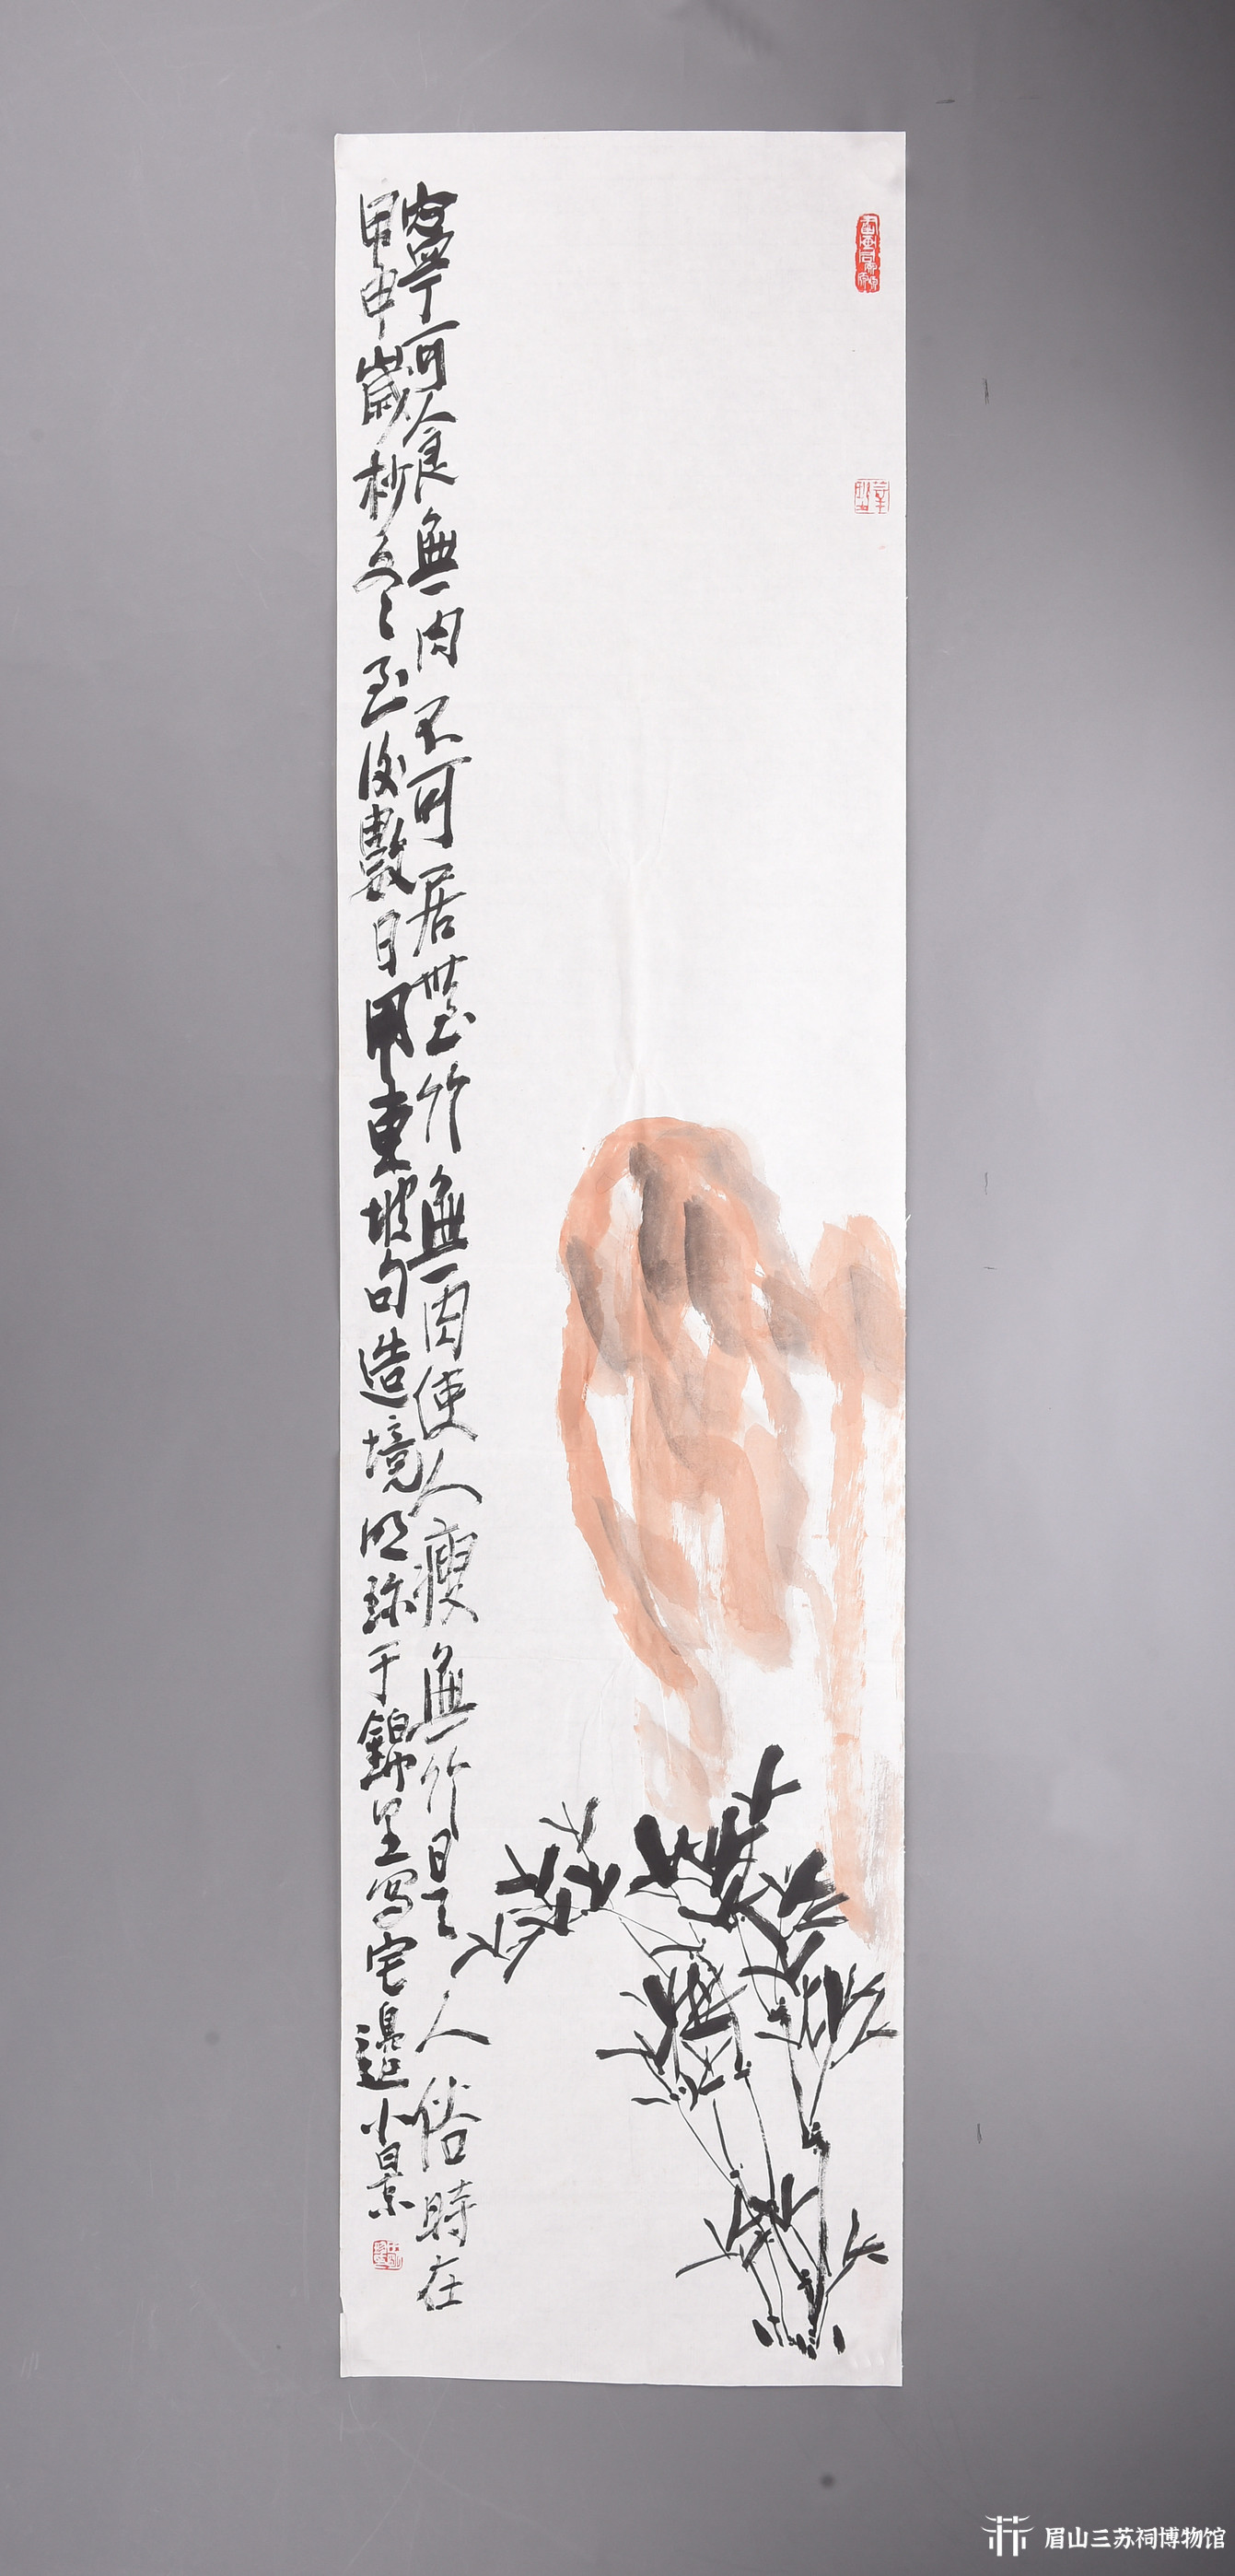 寧可食無肉不可居無竹無肉使人瘦無竹令人俗時在
甲申歲杪冬之至後數日用東坡句造境明珍于錦里寫宅邊小景
眉山三苏祠博物馆